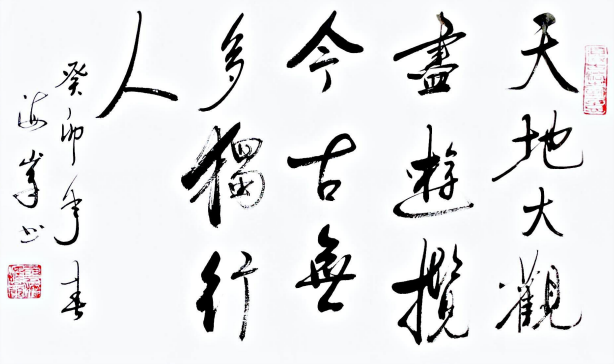 天地大觀
盡遊攬
今古無
多獨行
人
癸卯年春
海峯书